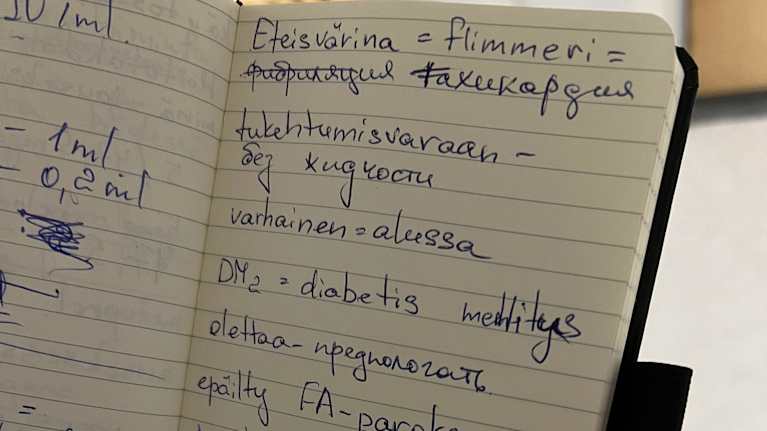 10 1ml.
- 1ml
- 0,2 ml
=
Eteisvärina = flimmeri =
фибриляция тахикардия
tukehtumisvaraan -
без жидкости
varhainen = alussa
DM2 = diabetis mellitys
olettaa - предпологать.
epäilty FA-paroks